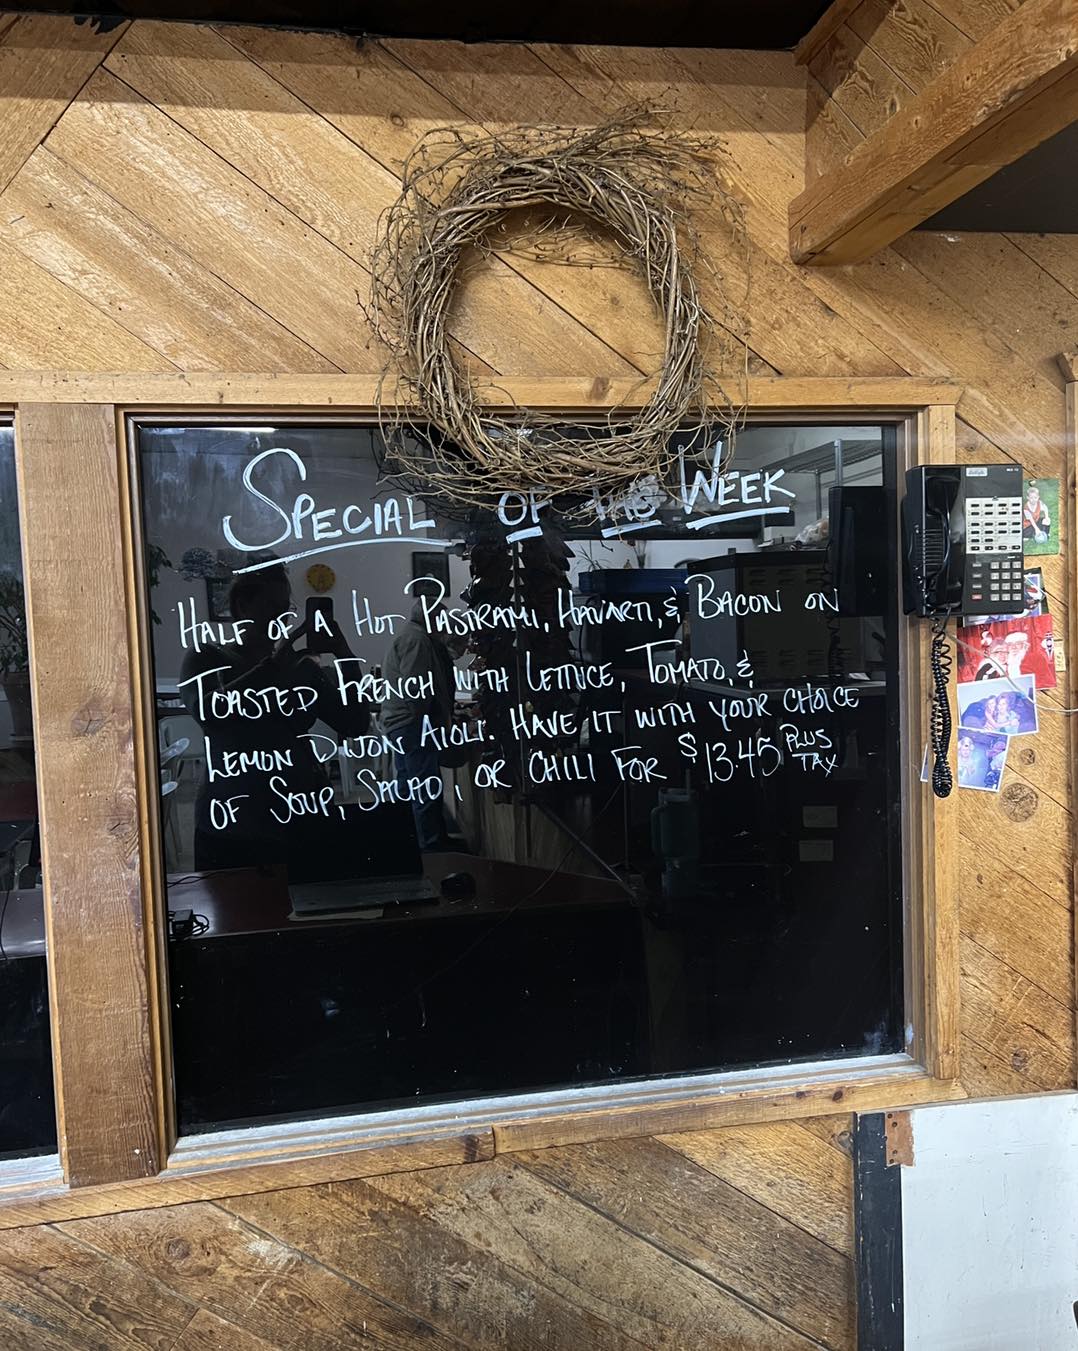 Special of the Week
Half of a Hot Pastrami, Havarti, & Bacon on
Toasted French with Lettuce, Tomato, &
Lemon Dijon Aioli. Have it with your choice
of Soup, Salad, or Chili for $13.45 plus tax